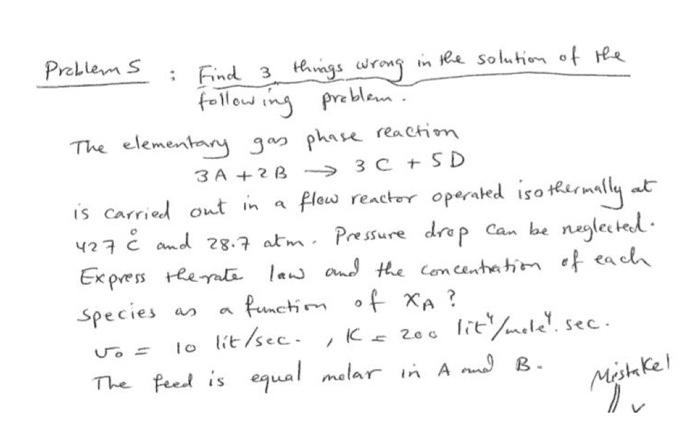 Problem 5 : Find 3 things wrong in the solution of the
following problem.
The elementary gas phase reaction
3A + 2B → 3C + 5D
is carried out in a flow reactor operated isothermally at
427 °C and 28.7 atm. Pressure drop can be neglected.
Express the rate law and the concentration of each
species as a function of XA ?
υ₀ = 10 lit/sec. , K = 200 lit⁴/mole⁴. sec.
The feed is equal molar in A and B.
Mistake 1